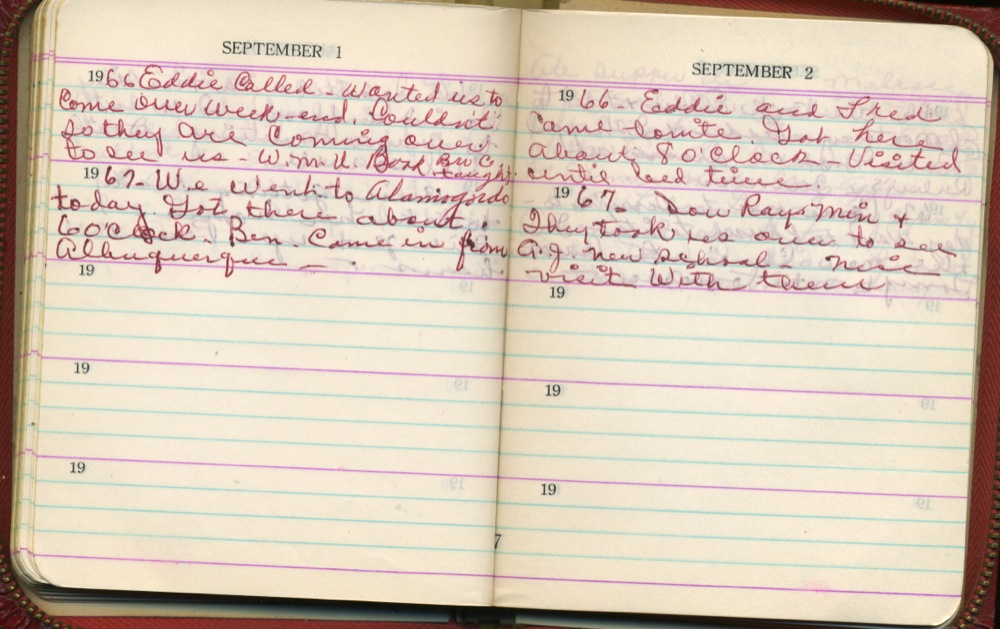 SEPTEMBER 1
1966 Eddie Called - Wanted us to
Come over week-end. Couldn't
So they are Coming over
to see us - W.M.U. Book Bro C.
taught.
1967- We went to Alamogordo
today. Got there about
6 o'clock. Ben Came in from
Albuquerque -
19
19
19
SEPTEMBER 2
1966 - Eddie and Fred
Came Got here
About 8 o'Clock - Visited
until bed time.
1967- Rays Min +
They took us over to see
A.J. New School - Nice
visit With them
19
19
19
7